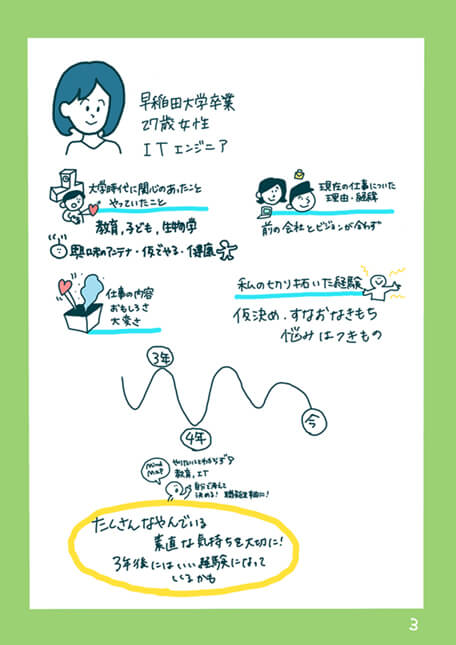 早稲田大学卒業
27歳女性
ITエンジニア
大学時代に関心のあったこと
やっていたこと
教育,子ども,生物学
興味のアンテナ・仮でやる・健康
現在の仕事についた
理由・経緯
前の会社とビジョンが合わず
仕事の内容
おもしろさ
大変さ
私の切り拓いた経験
仮決め・すなおなきもち
悩みはつきもの
3年
4年
今
mind map
やりたいことわからず?
教育,IT
自分で決めて
決める!
たくさんなやんでいる
素直な気持ちを大切に!
3年後にはいい経験になって
いるかも
3